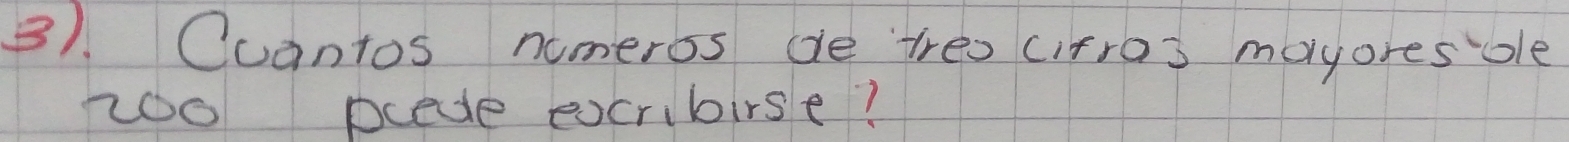 3). Cuantos numeros de tres cifras mayores de
200 puede escribirse?